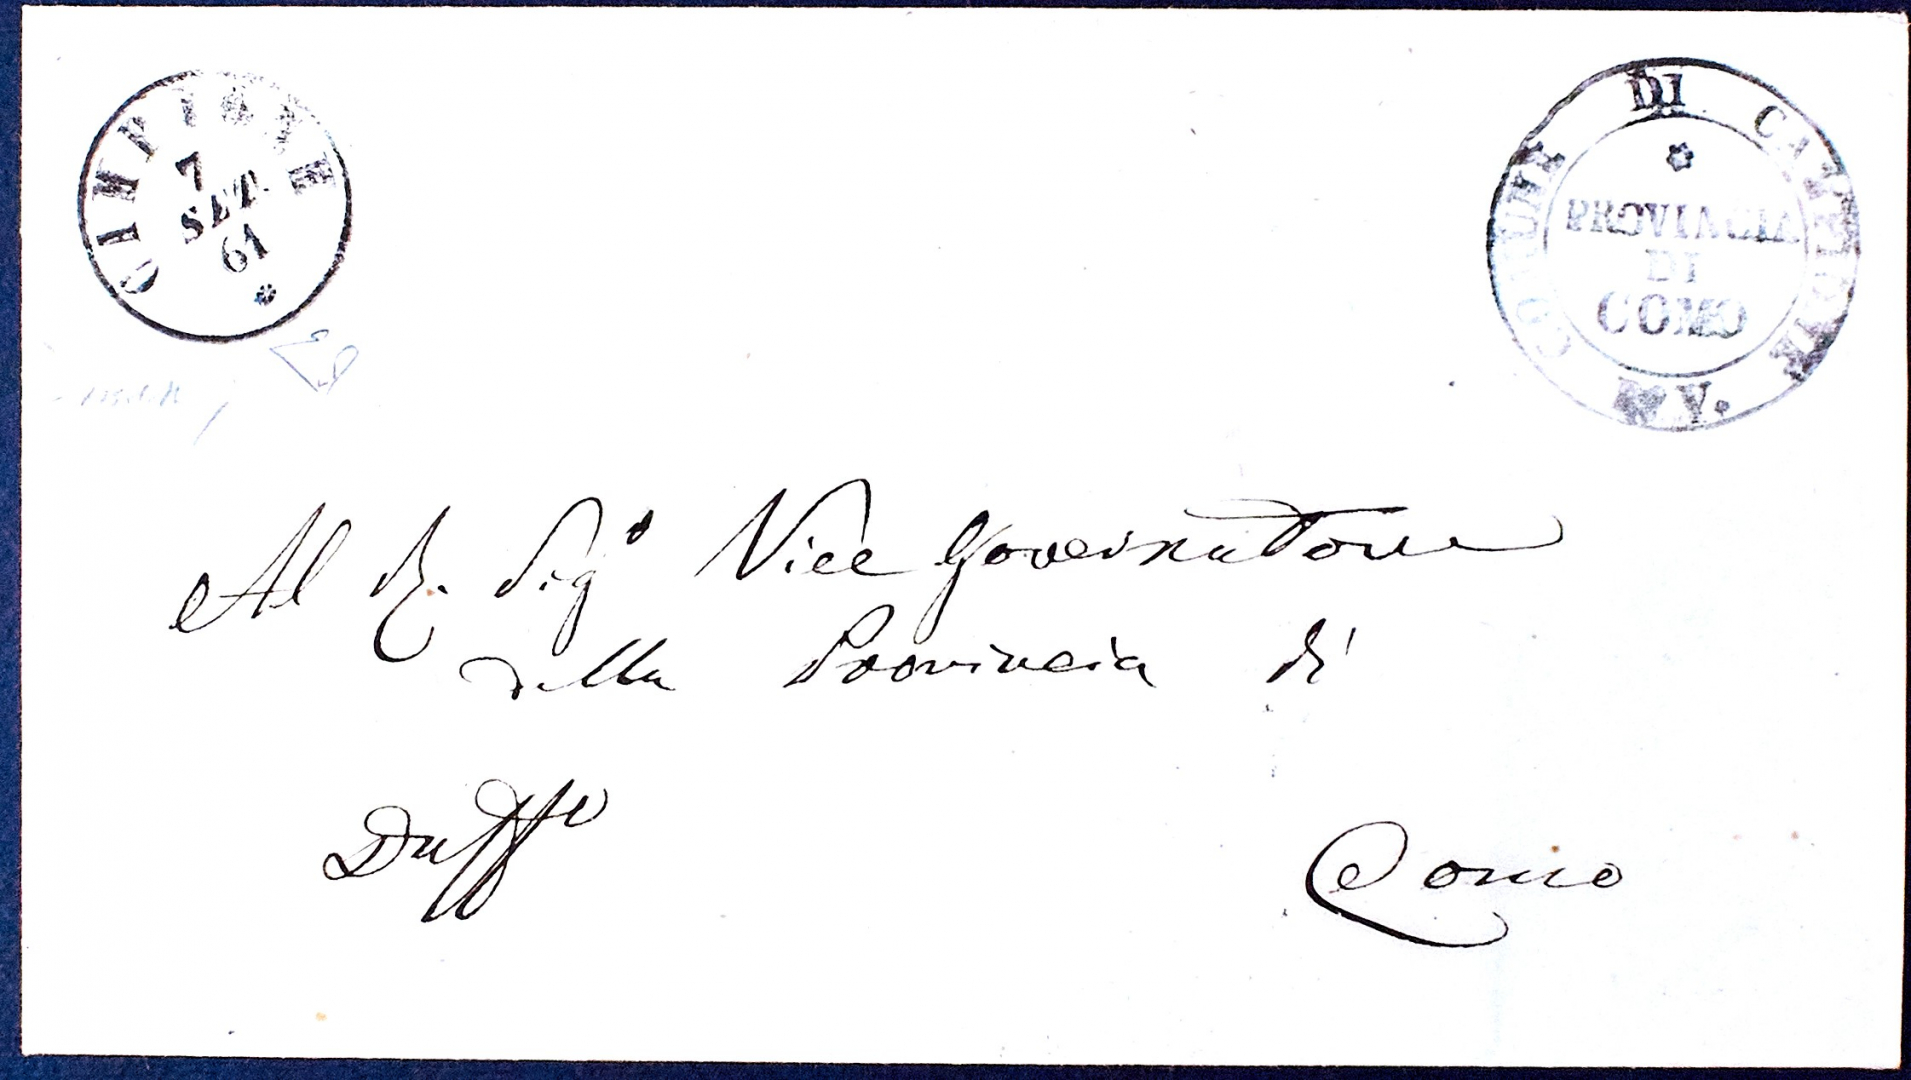 CAMPIONE
7
SET.
61
COMUNE DI CAMPIONE
PROVINCIA
DI
COMO
Al R. Sigr Vice Governatore
della Provincia di
Duffo
Como